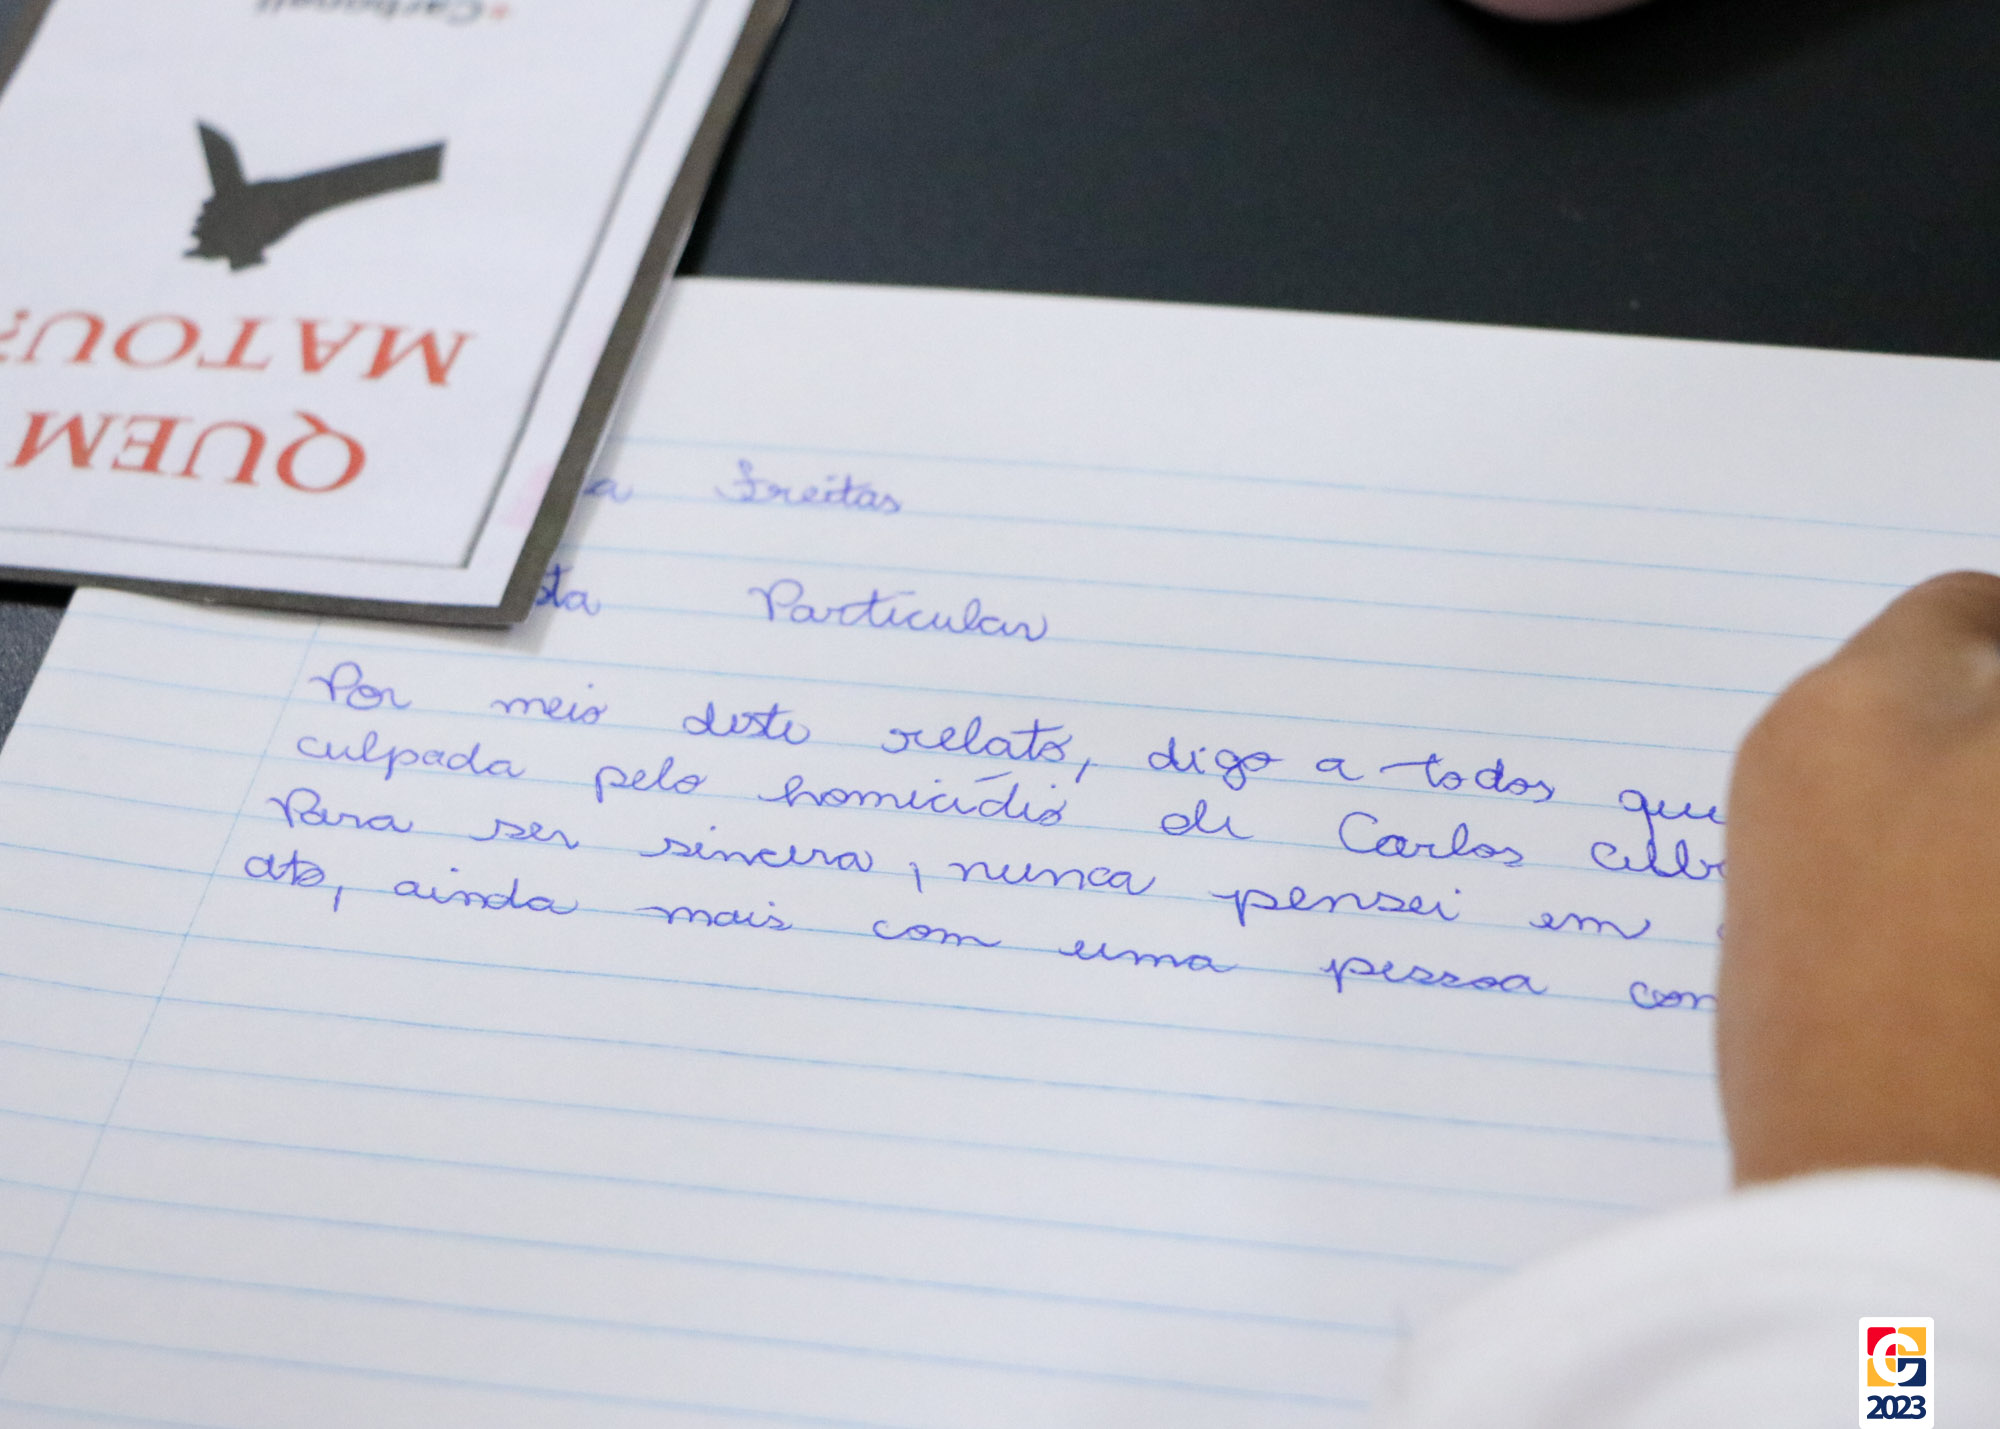 QUEM
MATOU?
a Freitas
sta Particular
Por meio deste relato, digo a todos que
culpada pelo homicídio de Carlos Alb
Para ser sincera, nunca pensei em
ato, ainda mais com uma pessoa com
2023